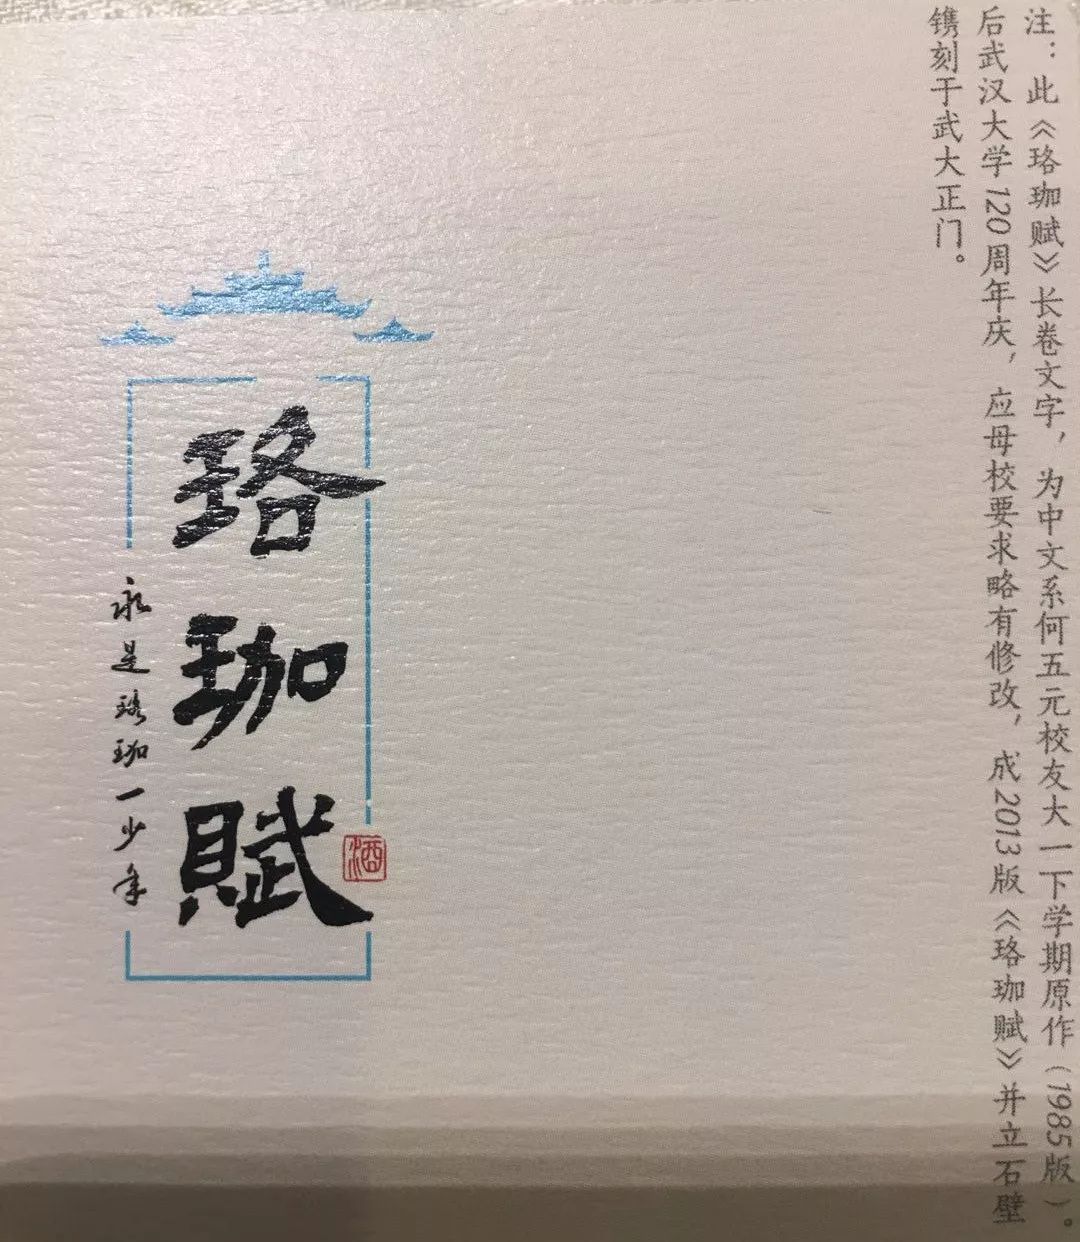 注：此《珞珈赋》长卷文字，为中文系何五元校友大一下学期原作（1985版）。
后武汉大学120周年庆，应母校要求略有修改，成2013版《珞珈赋》并立石壁
镌刻于武大正门。
珞珈賦
酒
永是珞珈一少年